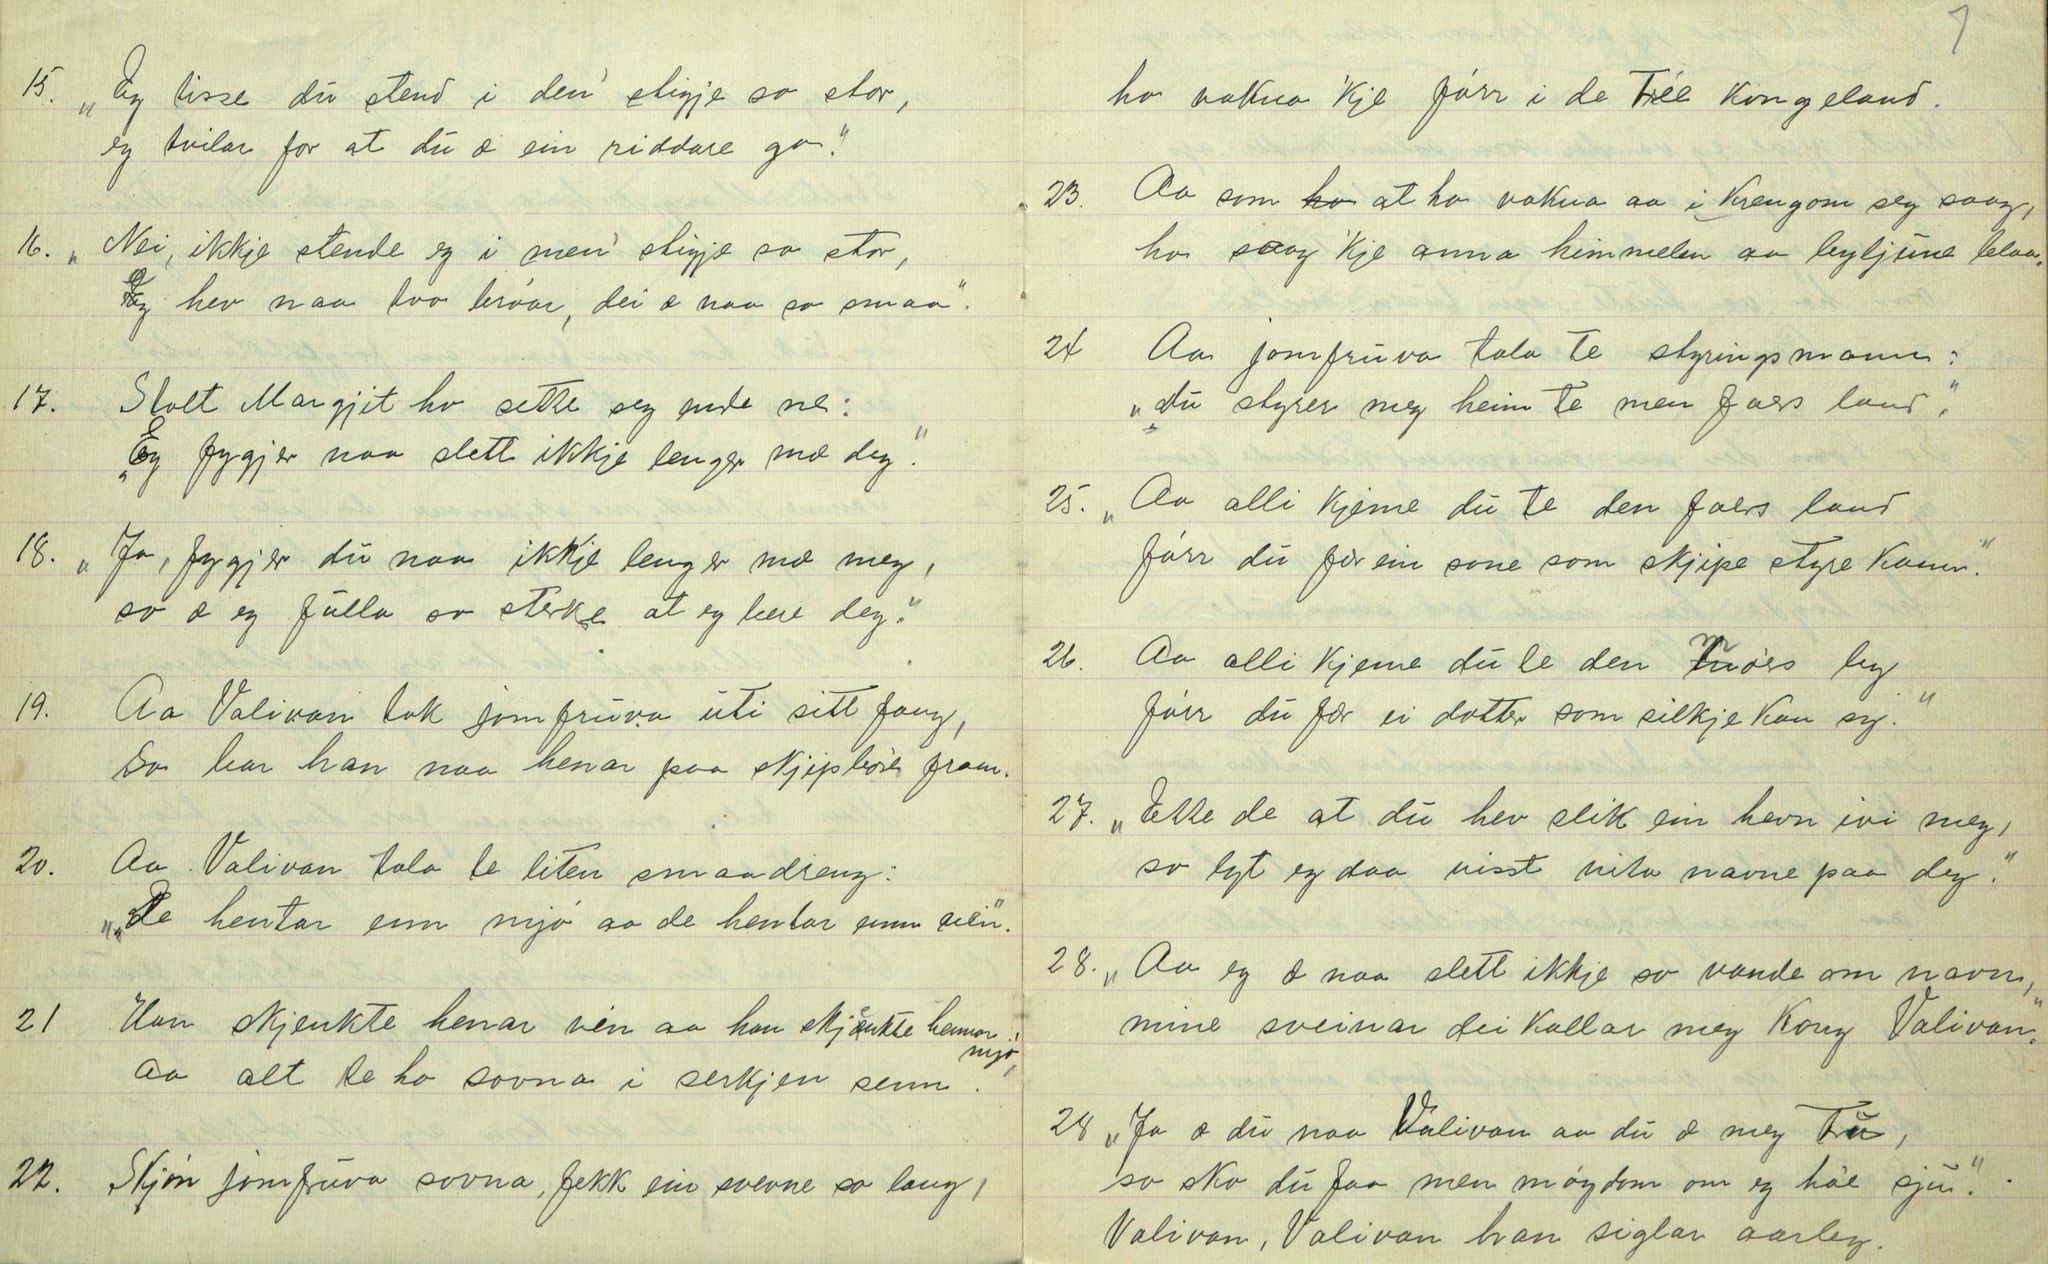 15. „Eg tisse du stend i den stigje so stor,
eg tvilar for at du æ ein riddare go."
16. „Nei, ikkje stende eg i men stigje so stor,
Eg hev naa tvo bröar, dei æ naa so smaa".
17. Stolt Margjit ho sette seg ende ne:
„Eg fygjer naa slett ikkje lenger mæ deg."
18. „Ja, fygjer du naa ikkje lenger mæ meg,
so æ eg fulla so sterke at eg bere deg."
19. Aa Valivan tok jomfruva uti sitt fang,
So bar han naa henar paa skjipbóre fram.
20. Aa Valivan tala te liten smaadreng:
„De hentar enn mjö aa de hentar enn vin".
21 Han skjenkte henar vin aa han skjænkte hennar mjö,
aa alt te ho sovna i serkjen senn.
22. Skjön jomfruva sovna, fekk ein svevne so lang,
7
ho vakna 'kje förr i de Trée kongeland.
23. Aa som ho at ho vakna aa i kringom seg saag,
ho saag 'kje anna himmelen aa bylgjune blaa.
24 Aa jomfruva tala te styringsmann:
„du styrer meg heim te men faers land",
25. „Aa alli kjeme du te den faers land
förr du fær ein sone som skjipe styre kann."
26. Aa alli kjeme du te den móers by
förr du fær ei dotter som silkje kan sy."
27. „Ette de at du hev slik ein hevn ivi meg,
so lyt eg daa visst vita navne paa deg."
28. „Aa eg æ naa slett ikkje so vande om navn,
mine sveinar dei kallar meg Kong Valivan."
28 „Ja æ du naa Valivan aa du æ meg Tru,
so ska du faa men möydom om eg háe sju."
Valivan, Valivan han siglar aarleg.